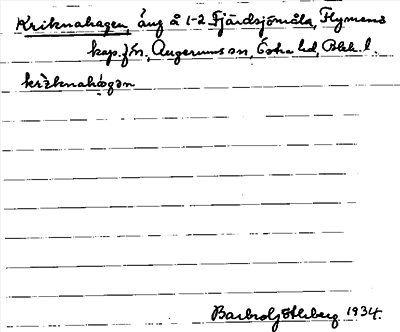 Kriknahagen, äng å 1-2 Fjärdsjömåla, Flymens
kap.fs., Augerums sn, Östra hd, Blek. l.
krìknahògən
Barbro Ljótsberg 1934.